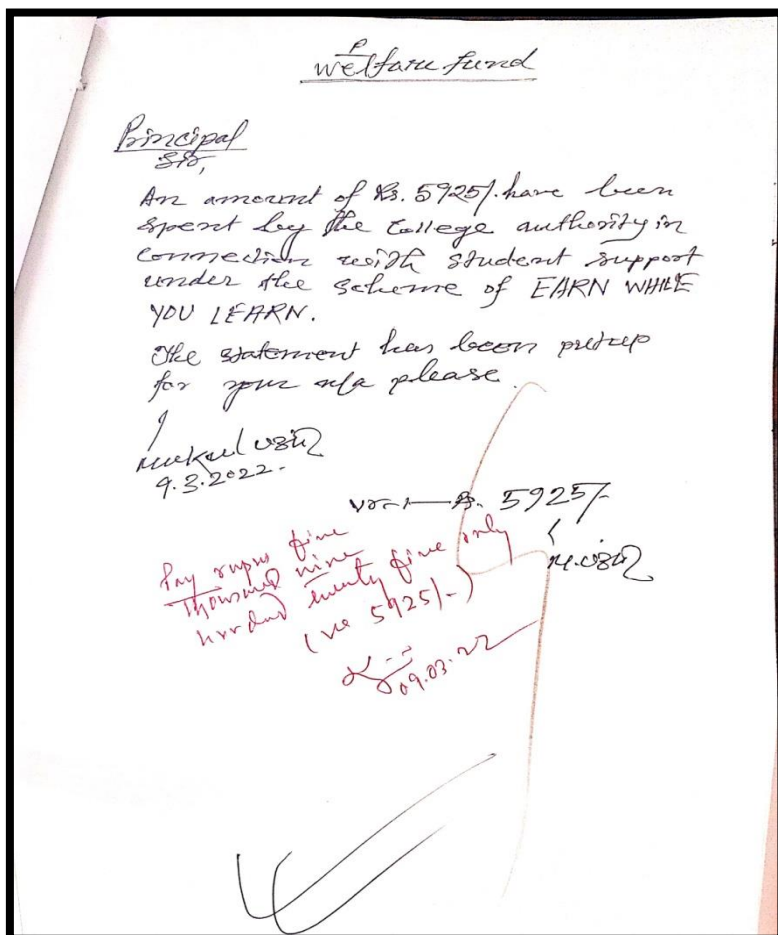 P
welfare fund
Principal
Sir,
An amount of Rs. 5925/- have been
spent by the College authority in
connection with student support
under the scheme of EARN WHILE
YOU LEARN.
The statement has been putup
for your n/a please.
9.3.2022.
vr-1 — Rs. 5925/-
Pay rupees five
thousand nine
hundred twenty five only
(Rs 5925/-)
09.03.22